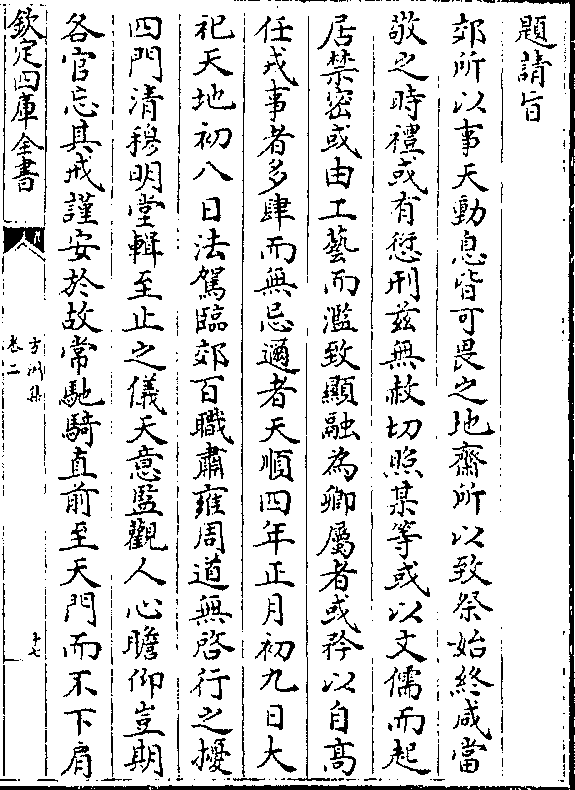 題請旨
郊所以事天動息皆可畏之地齋所以致祭始終咸當
敬之時禮或有愆刑兹無赦切照某等或以文儒而起
居禁密或由工藝而濫致顯融為卿屬者或矜以自高
任戎事者多肆而無忌邇者天順四年正月初九日大
祀天地初八日法駕臨郊百職肅雍周道無啓行之擾
四門清穆明堂輯至止之儀天意監觀人心瞻仰豈期
各官忘其戒謹安於故常馳騎直前至天門而不下肩
欽定四庫全書
方洲集
卷二
十七